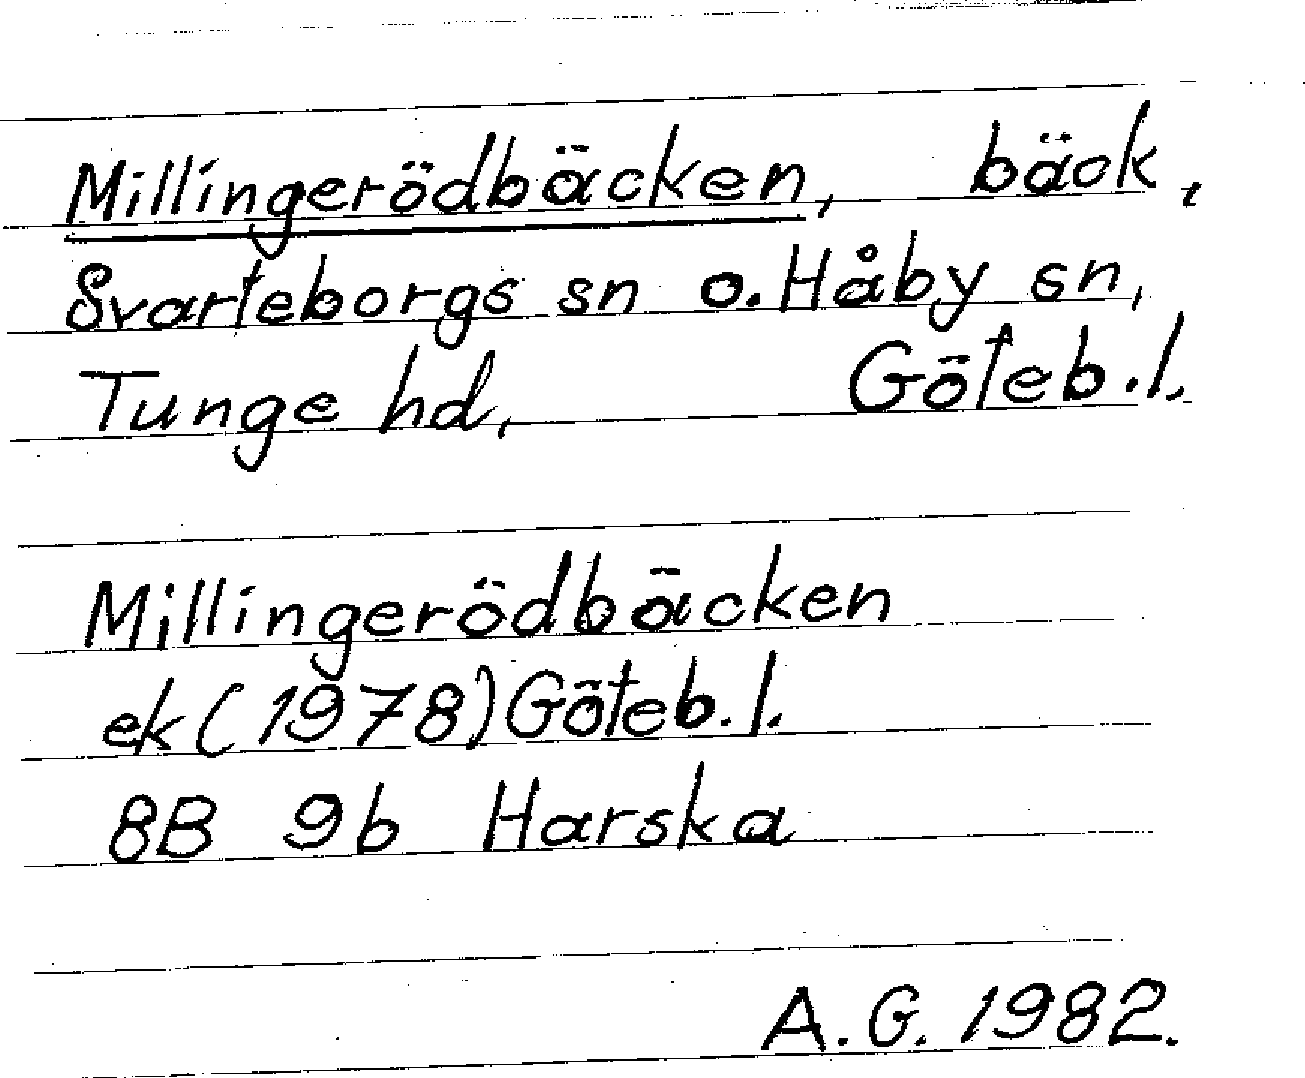 Millingerödbäcken, bäck,
Svarteborgs sn o. Håby sn,
Tunge hd, Göteb. l.
Millingerödbäcken
ek (1978) Göteb. l.
8B 9b Harska
A. G. 1982.